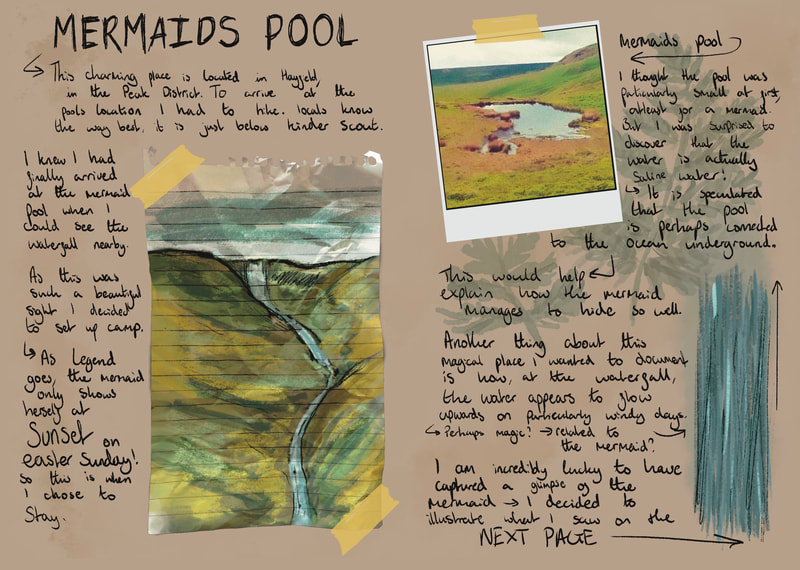 MERMAIDS POOL
This charming place is located in Hayfield,
in the Peak District. To arrive at the
pools location I had to hike. locals know
the way best, it is just below kinder Scout.
I knew I had
finally arrived
at the mermaid
Pool when I
could see the
waterfall nearby.
As this was
such a beautiful
sight I decided
to set up camp.
As Legend
goes, the mermaid
only shows
herself at
Sunset on
easter Sunday!
so this is when
I chose to
Stay.
Mermaids pool
I thought the pool was
particularly small at first,
atleast for a mermaid.
But I was surprised to
discover that the
water is actually
Saline water!
It is speculated
that the pool
is perhaps connected
to the ocean underground.
This would help
explain how the mermaid
manages to hide so well.
Another thing about this
magical place I wanted to document
is how, at the waterfall,
the water appears to flow
upwards on particularly windy days.
Perhaps magic? → related to
the mermaid?
I am incredibly lucky to have
captured a glimpse of the
mermaid → I decided to
illustrate what I saw on the
NEXT PAGE